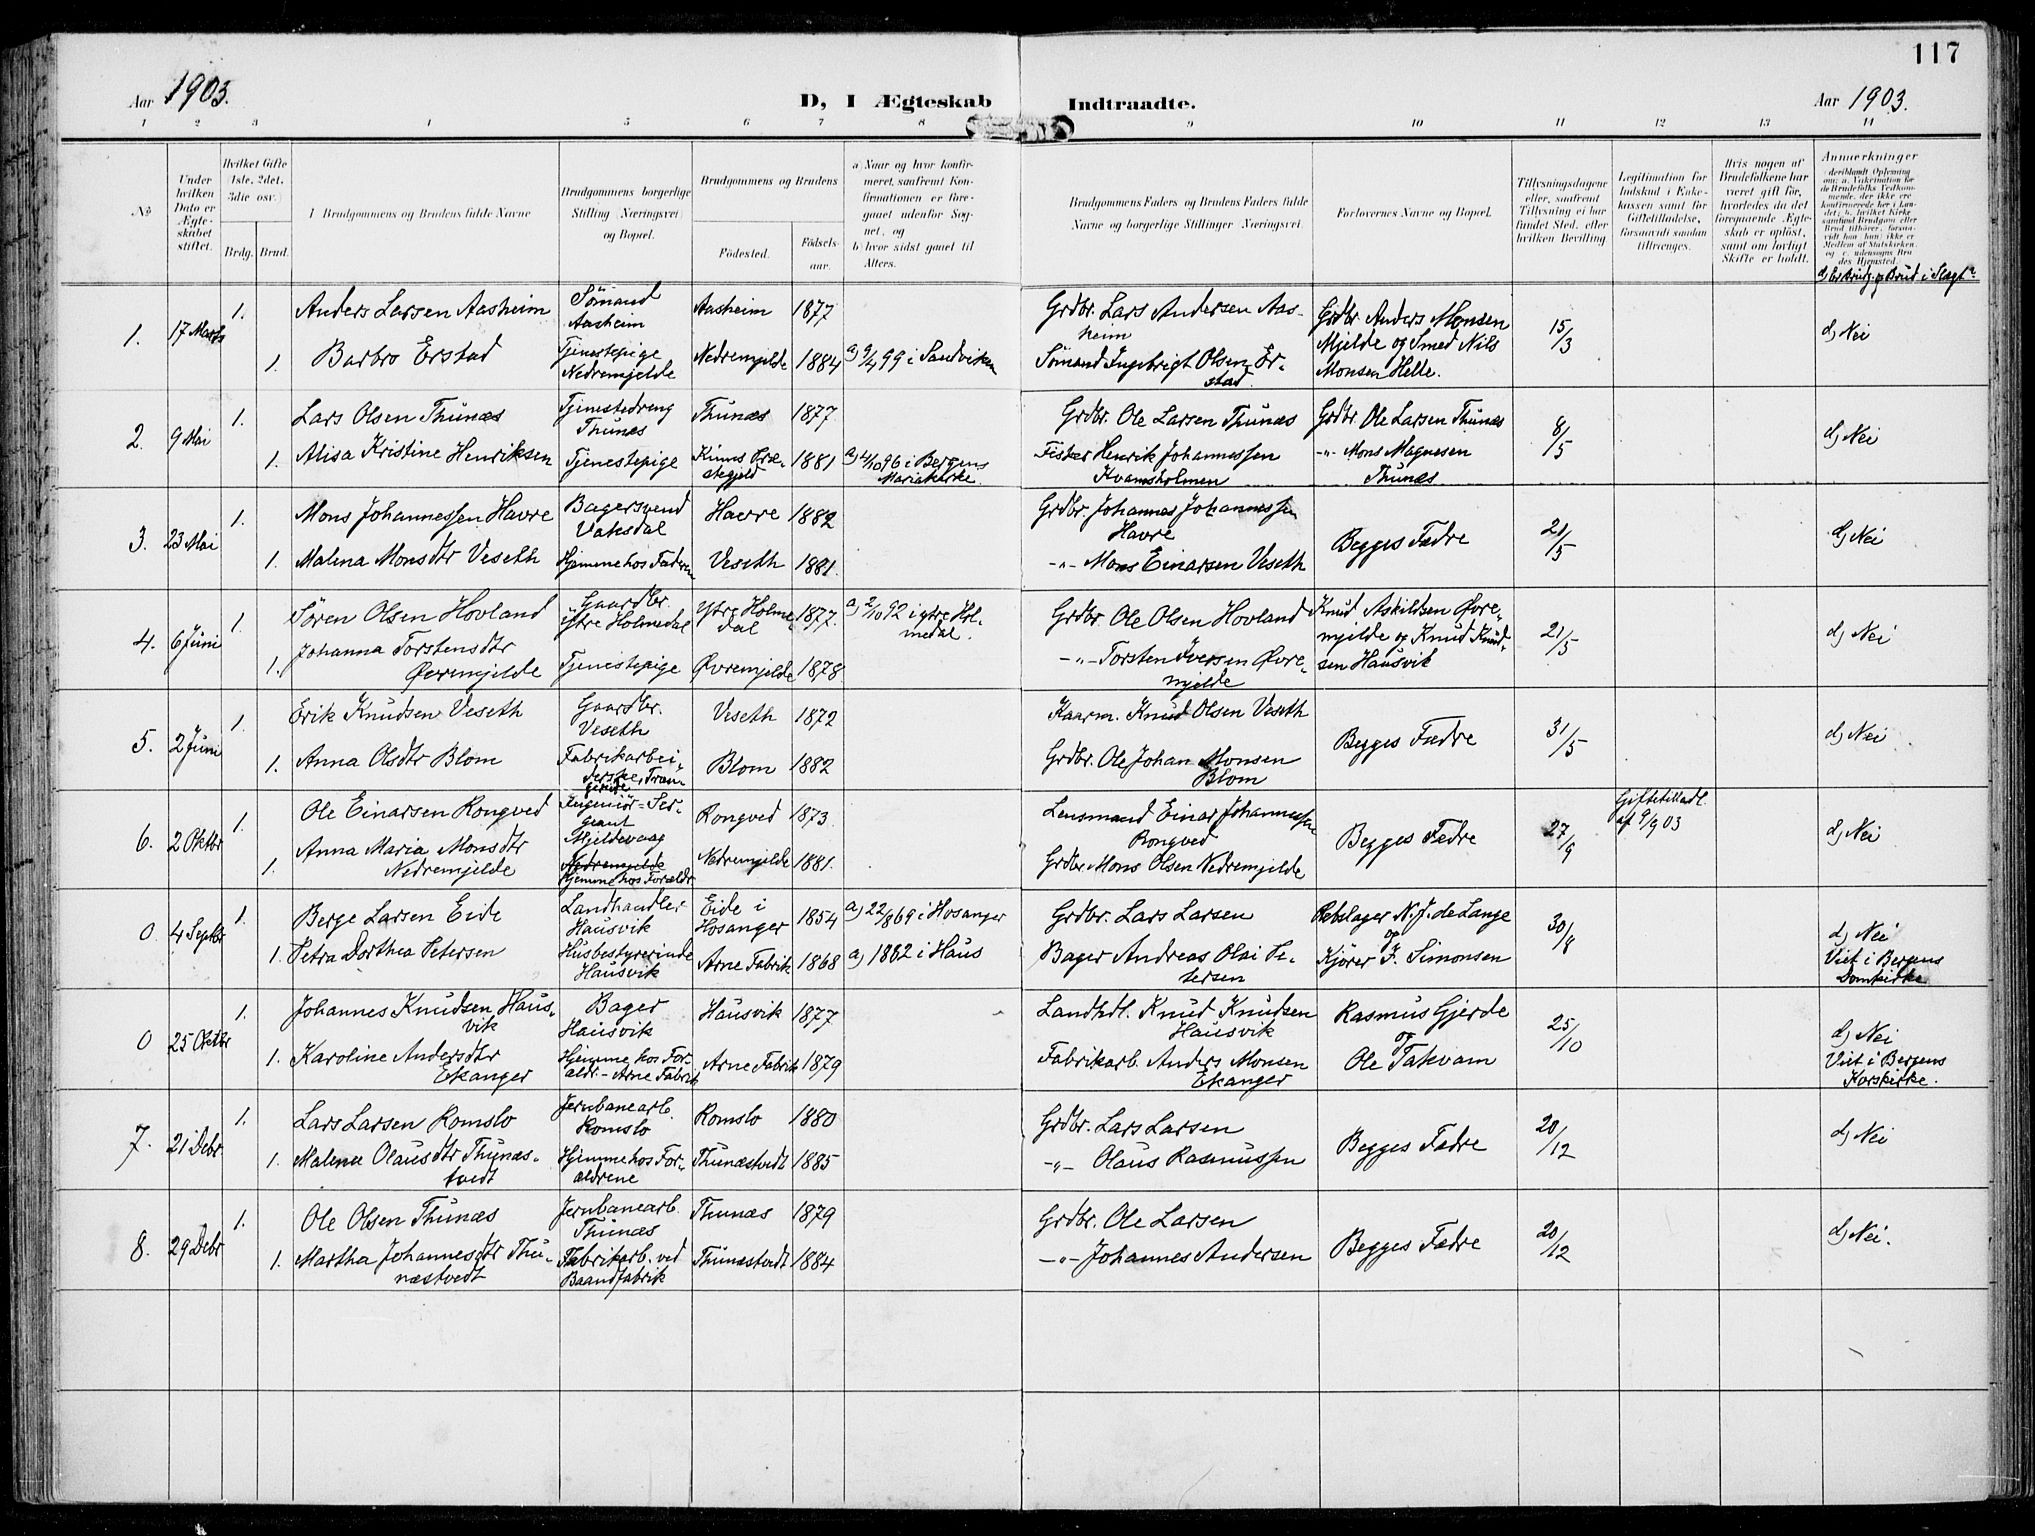 117
Aar 1903.
D, I Ægteskab Indtraadte.
Aar 1903.
1 2 3 4 5 6 7 8 9 10 11 12 13 14
No
Under hvilken Dato er Ægteskabet stiftet.
Hvilket Gifte (1ste, 2det, 3die osv.)
Brdg. Brud.
Brudgommens og Brudens fulde Navne
Brudgommens borgerlige Stilling (Næringsvei) og Bopæl.
Brudgommens og Brudens
Födested.
Födselsaar.
a) Naar og hvor konfirmeret, saafremt Konfirmationen er foregaaet udenfor Sognet, og
b) hvor sidst gaaet til Alters.
Brudgommens Faders og Brudens Faders fulde Navne og borgerlige Stillinger Næringsvei.
Forlovernes Navne og Bopæl.
Tillysningsdagene eller, saafremt Tillysning ei har fundet Sted, efter hvilken Bevilling
Legitimation for Indskud i Enkekassen samt for Giftetilladelse, forsaavidt saadan tiltrænges.
Hvis nogen af Brudefolkene har været gift för, hvorledes da det foregaaende Ægteskab er oplöst, samt om lovligt Skifte er holdt.
Anmærkninger
(deriblandt Oplysning om: a. Vakcination for de Brudefolks Vedkommende, der ikke ere konfirmerede her i Landet; b. hvilket Kirkesamfund Brudgom eller Brud tilhörer, forsaavidt han (hun) ikke er Medlem af Statskirken, og c. udensogns Brudes Hjemsted.
d) Er Brudg. og Brud i Slægt?
1. 17 Marts 1. Anders Larsen Aasheim Sömand Aasheim Aasheim 1877 Grdbr. Lars Andersen Aasheim Grdbr. Anders Monsen Mjelde og Smed Nils Monsen Helle. 15/3 d) Nei
1. Barbro Erstad Tjenestepige Nedremjelde Nedremjelde 1884 a) 9/4 99 i Sandviken Sömand Ingebrigt Olsen Erstad.
2. 9 Mai 1. Lars Olsen Thunæs Tjenestedreng Thunæs Thunæs 1877 Grdbr. Ole Larsen Thunæs Grdbr. Ole Larsen Thunæs 8/5 d) Nei
1. Alisa Kristine Henriksen Tjenestepige Kinns Præstegjeld 1881 a) 4/10 96 i Bergens Mariakirke. Fisker Henrik Johannessen Kvamsholmen -"- Mons Magnesen Thunæs
3. 23 Mai 1. Mons Johannessen Havre Bagersvend Vaksdal Havre 1882 Grdbr. Johannes Johannessen Havre Begges Fædre 21/5 d) Nei
1. Malena Monsdtr Veseth Hjemme hos Faderen Veseth 1881. -"- Mons Einarsen Veseth
4. 6 Juni 1. Sören Olsen Hovland Gaardbr. Ytre Holmedal Ytre Holmedal 1877. a) 2/10 92 i ytre Holmedal. Grdbr. Ole Olsen Hovland Knud Askildsen Øvremjelde og Knud Knudsen Hausvik 21/5 d) Nei
1. Johanna Torstensdtr Øvremjelde Tjenestepige Øvremjelde 1878 -"- Torsten Iversen Øvremjelde
5. 2 Juni 1. Erik Knudsen Veseth Gaardbr. Veseth Veseth 1872 Kaarm. Knud Olsen Veseth Begges Fædre 31/5 d) Nei
1. Anna Olsdtr Blom Fabrikarbeiderske, Trengereide Blom 1882 Grdbr. Ole Johan Monsen Blom
6. 2 Oktbr 1. Ole Einarsen Rongved Ingeniör=Sergeant Mjeldevaag Rongved 1873. Lensmand Einar Johannessen Rongved Begges Fædre 27/9 Giftetilladl. af 9/9 03 d) Nei
1. Anna Maria Monsdtr Nedremjelde Nedremjelde Hjemme hos Forældr. Nedremjelde 1881. Grdbr. Mons Olsen Nedremjelde
0 4 Septbr 1. Berge Larsen Eide Landhandler Hausvik Eide i Hosanger 1854 a) 22/8 69 i Hosanger Grdbr. Lars Larsen Rebslager N. J. de Lange og 30/8 d) Nei
1. Petra Dorthea Petersen Husbestyrerinde Hausvik Arne Fabrik 1868 a) 1882 i Haus Bager Andreas Olai Petersen Kjörer F. Simonsen Viet i Bergens Domkirke
0 25 Oktbr 1. Johannes Knudsen Hausvik Bager Hausvik Hausvik 1877 Landhdl. Knud Knudsen Hausvik Rasmus Gjerde og 25/10 d) Nei
1. Karoline Andersdtr Ekanger Hjemme hos Forældr. - Arne Fabrik Arne Fabrik 1879 Fabrikarb. Anders Monsen Ekanger Ole Takvam Viet i Bergens Korskirke.
7. 21 Debr 1. Lars Larsen Romslo Jernbanearb. Romslo Romslo 1880 Grdbr. Lars Larsen Begges Fædre 20/12 d) Nei
1. Malena Olausdtr Thunæstvedt Hjemme hos Forældrene Thunæstvedt 1885 -"- Olaus Rasmussen
8. 29 Debr 1. Ole Olsen Thunæs Jernbanearb. Thunæs Thunæs 1879 Grdbr. Ole Larsen Begges Fædre 20/12 d) Nei.
1. Martha Johannesdtr Thunæstvedt Fabrikarb. ved Baandfabrik Thunæstvedt 1884 -"- Johannes Andersen